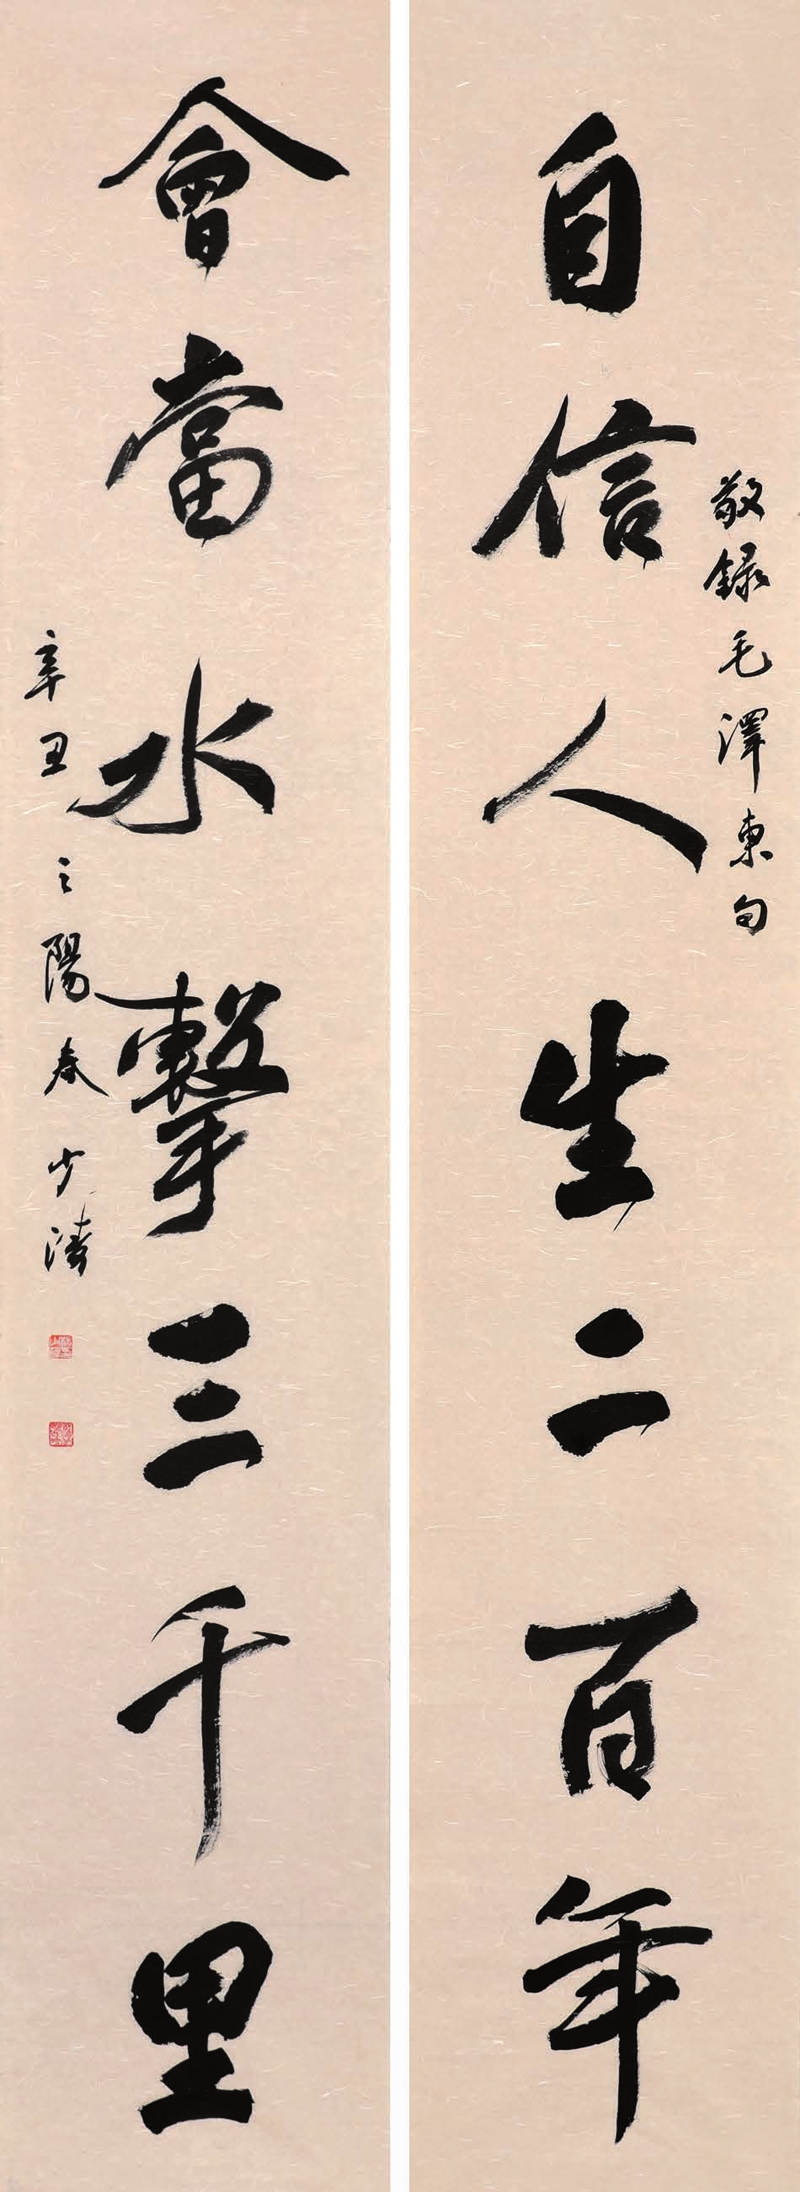 敬錄毛澤東句
自信人生二百年
會當水擊三千里
辛丑之陽春少濤